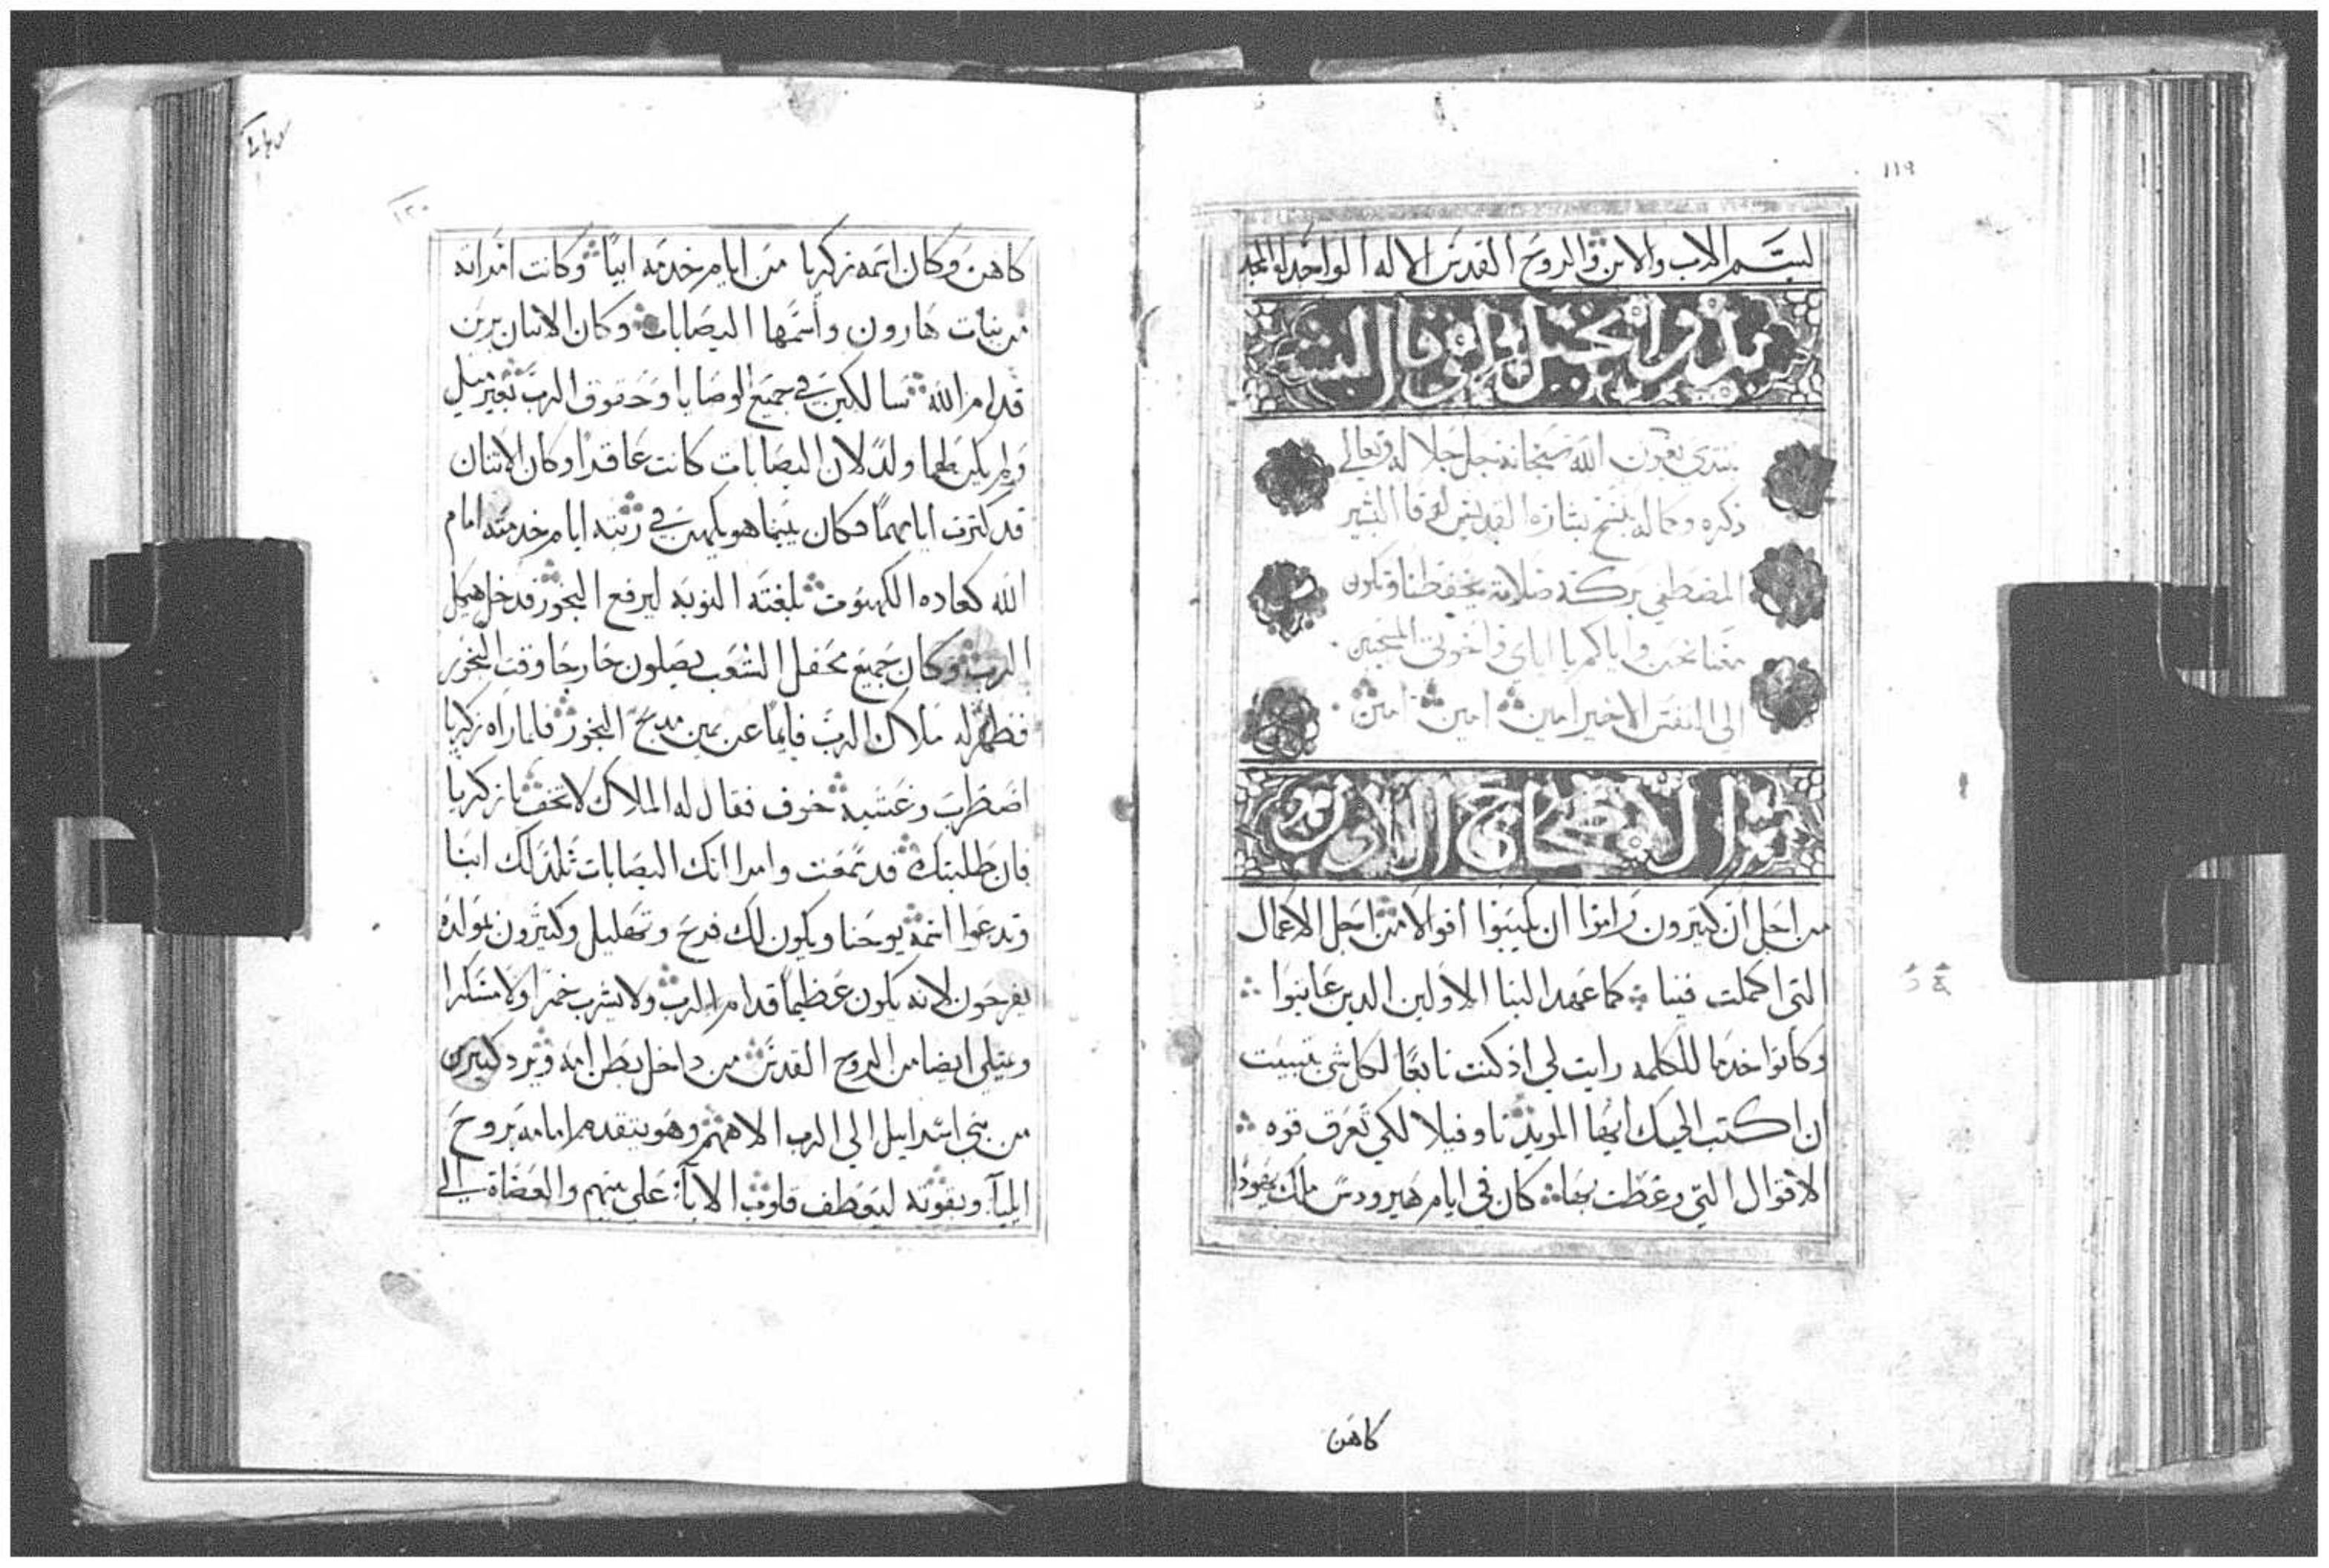 ١١٩
بسم الاب والابن والروح القدس الاله الواحد له المجد
بدو انجيل لوقا البشير
نبتدي بعون الله سبحانه جل جلاله وتعالي
ذكره وكماله بنسخ بشارة القديس لوقا البشير
المصطفي بركة صلاته تحفظنا وتكون
معنا نحن واياكم يا اباي واخوتي المحبين
الي النفس الاخير امين امين امين
الاصحاح الاول
من اجل ان كثيرون راموا ان يكتبوا اقوالا من اجل الاعمال
التي اكملت فينا كما عهد الينا الاولين الدين عاينوا
وكانوا خدما للكلمه رايت لي اذ كنت تابعا لكل شي بتبيت
ان اكتب اليك ايها المويد تاوفيلا لكي تعرف قوه
الاقوال التي وعظت بها كان في ايام هيرودس ملك يهودا
كاهن
١٢٠
كاهن وكان اسمه زكريا من ايام خدمة ابيا وكانت امراته
من بنات هارون واسمها اليصابات وكان الاتنان بررين
قدام الله سالكين في جميع الوصايا وحقوق الرب بغير ميل
ولم يكن لهما ولد لان اليصابات كانت عاقرا وكان الاتنان
قد كترت ايامهما فكان بينما هو يكهن في رتبة ايام خدمته امام
الله كعاده الكهنوت بلغته النوبه ليرفع البخور فدخل هيكل
الرب وكان جميع محفل الشعب يصلون خارجا وقت البخور
فظهر له ملاك الرب قايما عن يمين مدبح البخور فلما راه زكريا
اضطرب وغشيه خوف فقال له الملاك لا تخف يا زكريا
فان طلبتك قد سمعت وامراتك اليصابات تلد لك ابنا
وتدعوا اسمه يوحنا ويكون لك فرح وتهليل وكثيرون بمولده
يفرحون لانه يكون عظيما قدام الرب ولا يشرب خمرا ولا مسكرا
ويمتلي ايضا من الروح القدس من داخل بطن امه ويرد كثيرين
من بني اسراييل الي الرب الاههم وهو يتقدم امامه بروح
ايليا وبقوته ليعطف قلوب الابا علي بنيهم والعصاة الي